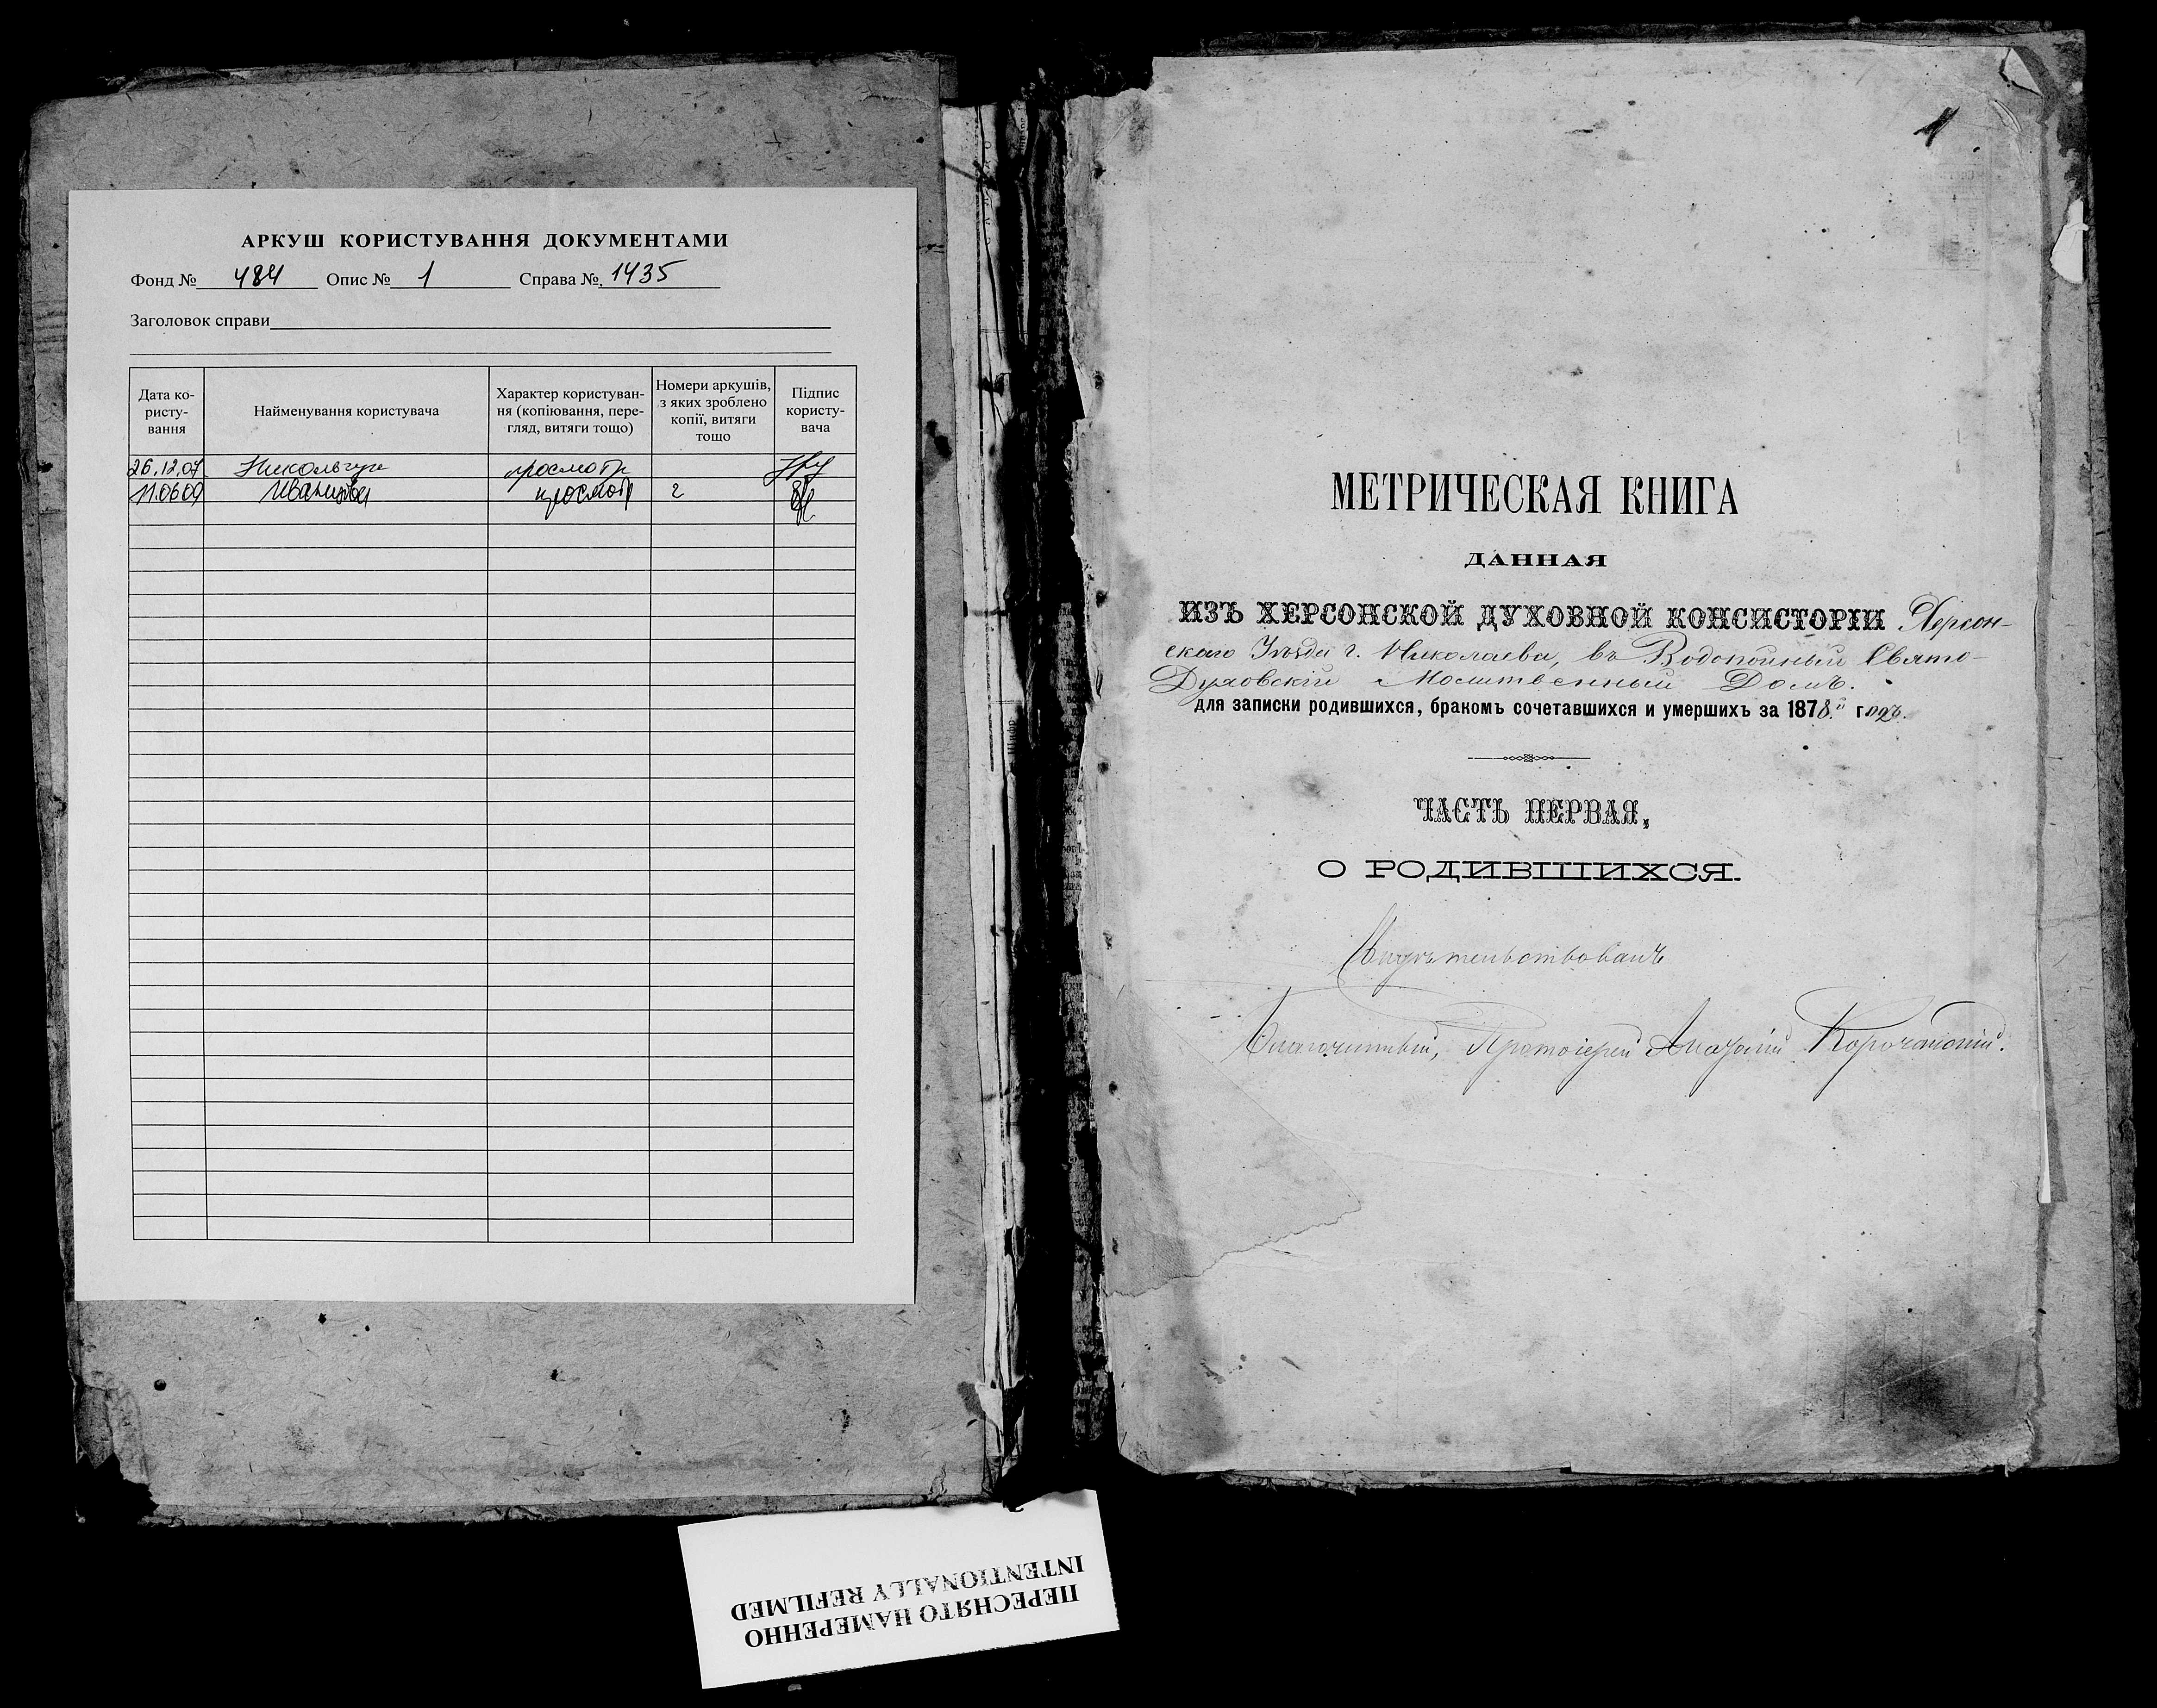 АРКУШ КОРИСТУВАННЯ ДОКУМЕНТАМИ
Фонд № 484 Опис № 1 Справа № 1435
Заголовок справи
Дата ко-
ристу-
вання
Найменування користувача
Характер користуван-
ня (копіювання, пере-
гляд, витяги тощо)
Номери аркушів,
з яких зроблено
копії, витяги
тощо
Підпис
користу-
вача
26.12.07 просмотр
11.06.09 Иванова просмотр 2
1
МЕТРИЧЕСКАЯ КНИГА
ДАННАЯ
ИЗЪ ХЕРСОНСКОЙ ДУХОВНОЙ КОНСИСТОРІИ Херсон-
скаго Уѣзда г. Николаева, въ Водопойный Свято-
Духовскій Молитвенный Домъ.
для записки родившихся, бракомъ сочетавшихся и умершихъ за 1878й годъ.
ЧАСТЬ ПЕРВАЯ,
О РОДИВШИХСЯ.
Свидѣтельствовалъ
Благочинный, Протоіерей
ПЕРЕСНЯТО НАМЕРЕННО
INTENTIONALLY REFILMED